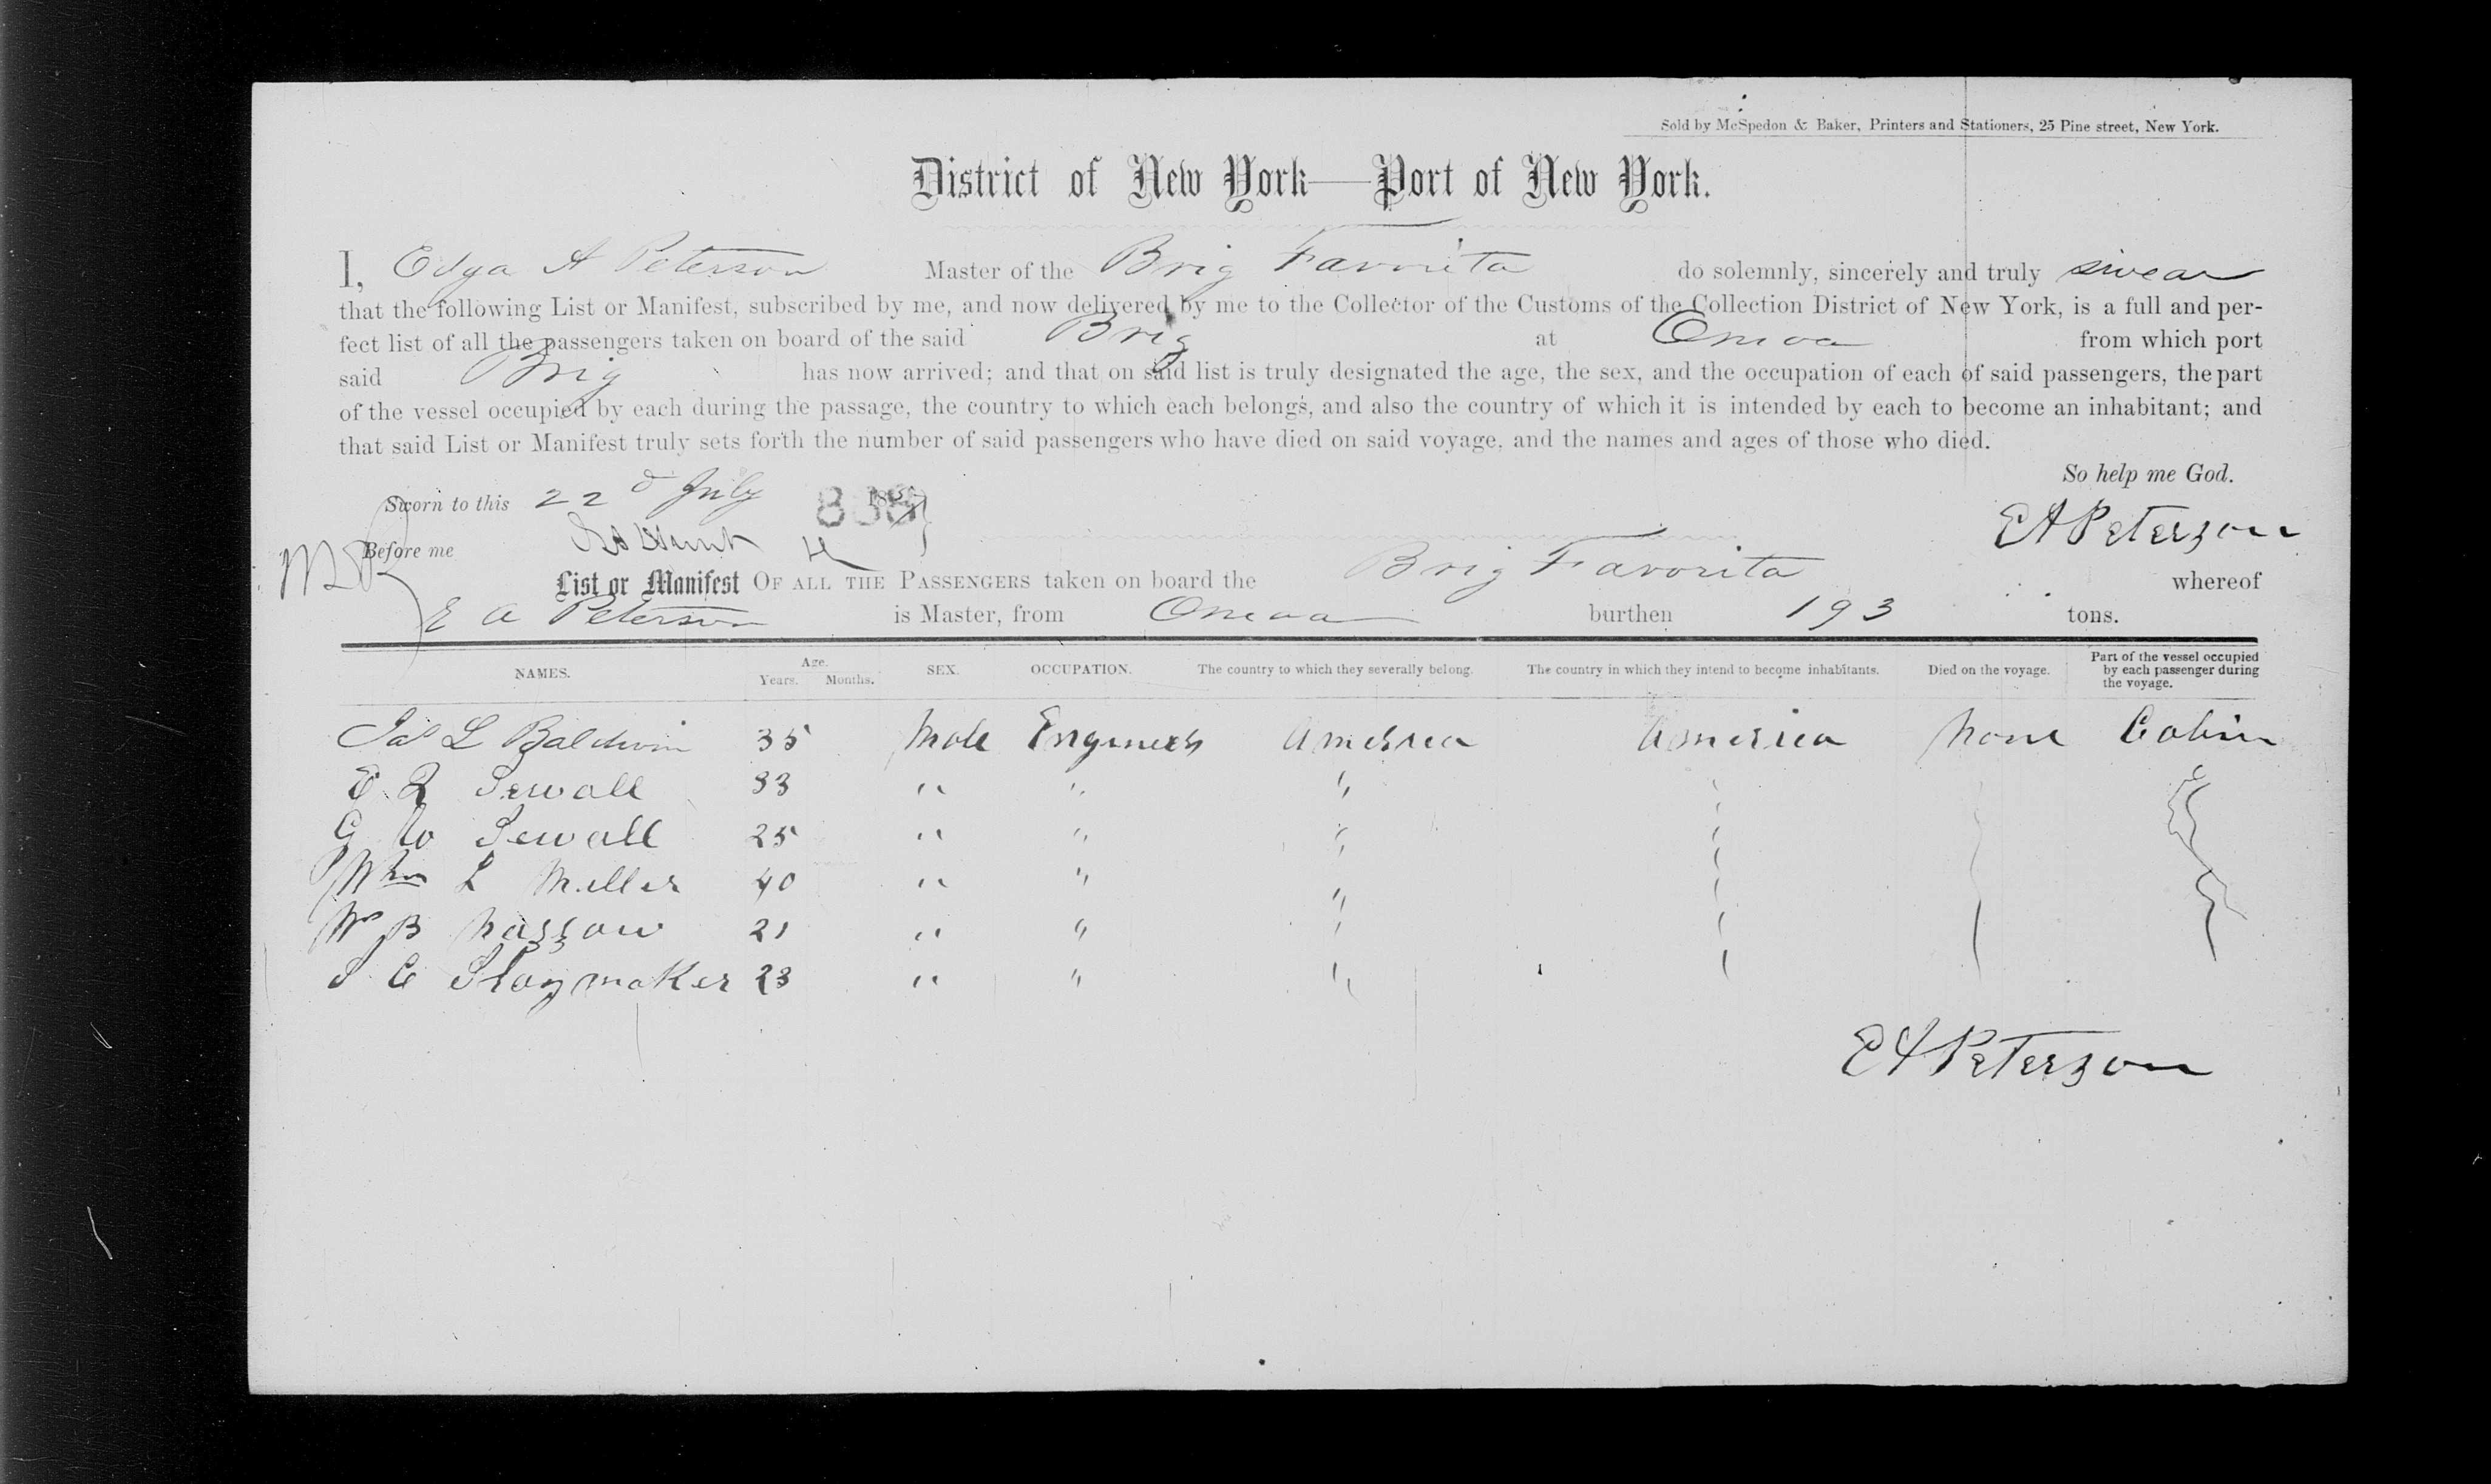 Sold by McSpedon & Baker, Printers and Stationers, 25 Pine street, New York.
District of New York—Port of New York.
I, Edga A Peterson Master of the Brig Favorita do solemnly, sincerely and truly swear
that the following List or Manifest, subscribed by me, and now delivered by me to the Collector of the Customs of the Collection District of New York, is a full and per-
fect list of all the passengers taken on board of the said Brig at Omoa from which port
said Brig has now arrived; and that on said list is truly designated the age, the sex, and the occupation of each of said passengers, the part
of the vessel occupied by each during the passage, the country to which each belongs, and also the country of which it is intended by each to become an inhabitant; and
that said List or Manifest truly sets forth the number of said passengers who have died on said voyage, and the names and ages of those who died.
So help me God.
Sworn to this 22d July 185
838
EAPeterson
Before me
List or Manifest OF ALL THE PASSENGERS taken on board the Brig Favorita whereof
E A Peterson is Master, from Omoa burthen 193 tons.
NAMES. Age. Years. Months. SEX. OCCUPATION. The country to which they severally belong. The country in which they intend to become inhabitants. Died on the voyage. Part of the vessel occupied by each passenger during the voyage.
Jas L Baldwin 35 Male Engineers America America None Cabin
Sewall 33 " " "
G W Sewall 25 " " "
Wm L Miller 40 " " "
Wm B 21 " " "
S C Slaymaker 23 " " "
EAPeterson